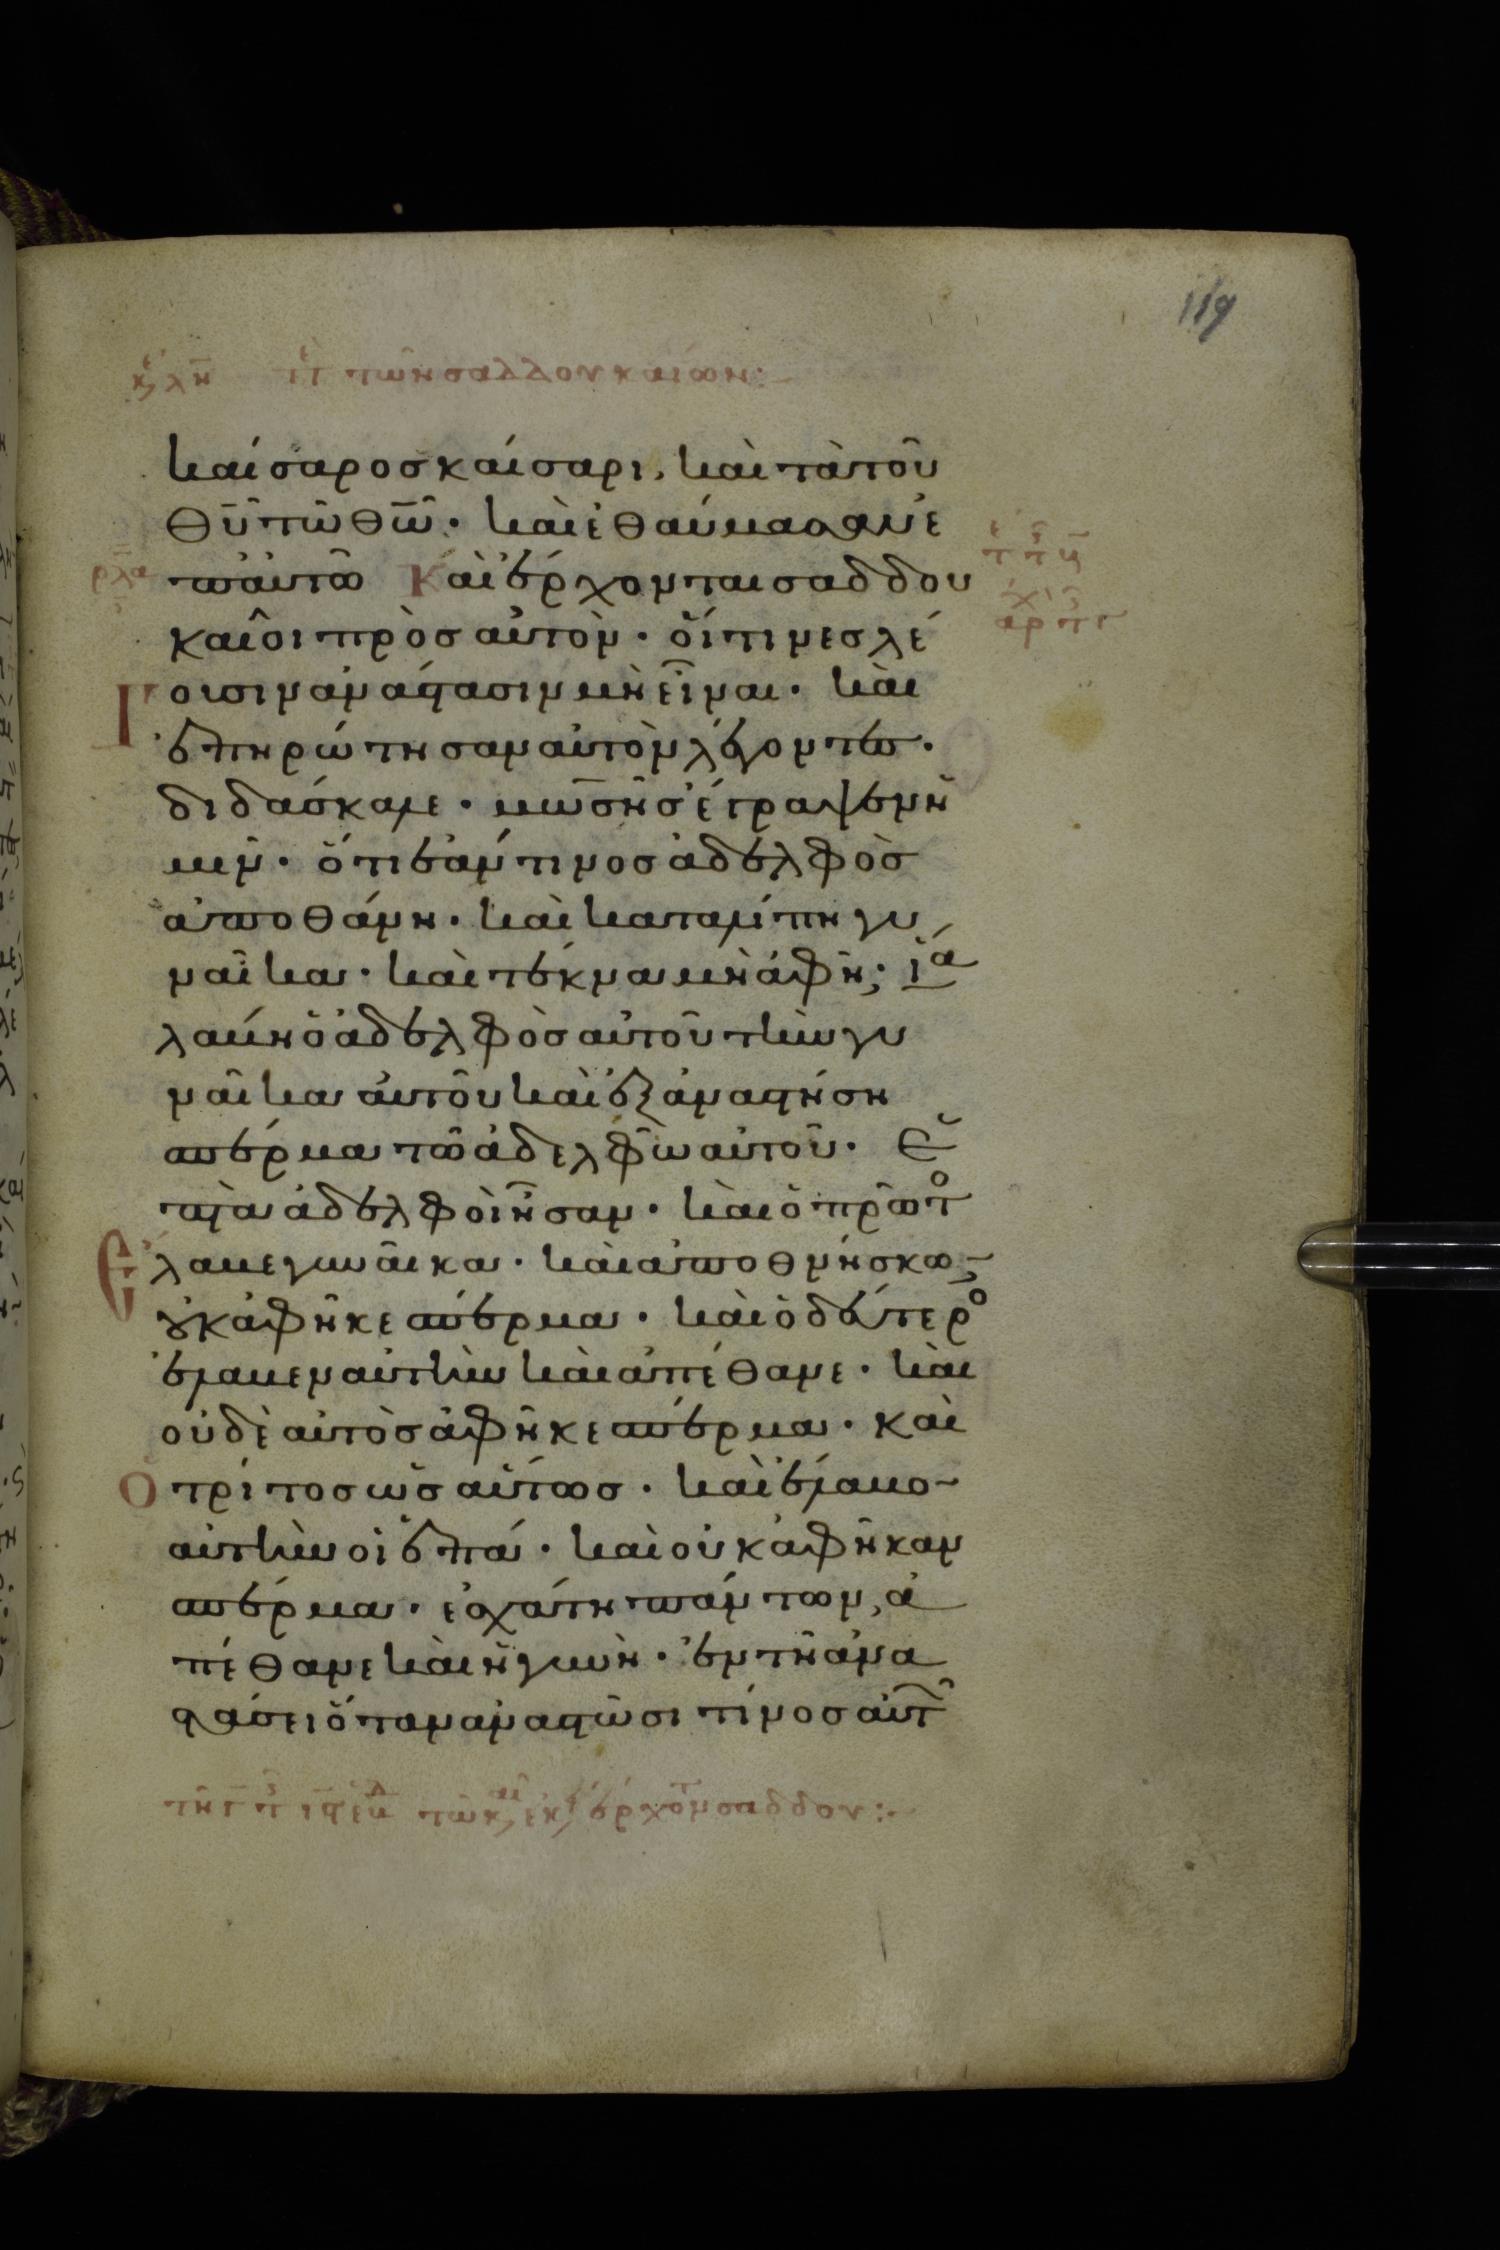 119
τῶν σαδδουκαίων:
καίσαρος καίσαρι, καὶ τὰ τοῦ
θ̅υ̅ τῶ θ̅ω̅· καὶ ἐθαύμασαν ἐ
π' ἀυτῶ Καὶ ἔρχονται σαδδου
καῖοι πρὸς αὐτὸν· οἵτινες λέ
Γουσιν ἀνάστασιν μὴ εἶναι· καὶ
ἐπηρώτησαν αὐτὸν λέγοντες·
διδάσκαλε· μωσῆς ἔγραψεν ἡ
μῖν· ὅτι ἐάν τινος ἀδελφὸς
ἀποθάνη· καὶ καταλίπη γυ
ναῖκα· καὶ τέκνα μὴ ἀφῆ; ἵνα
λάβη ὁ ἀδελφὸς αὐτοῦ τὴν γυ
ναῖκα ἀυτοῦ καὶ ἐξαναστήση
σπέρμα τῶ ἀδελφῶ αὐτοῦ· ἑ
πτὰ ἀδελφοὶ ἦσαν· καὶ ὁ πρῶτο
Ἔλαβε γυναῖκα· καὶ ἀποθνήσκων
οὐκ ἀφῆκε σπέρμα· καὶ ὁ δεύτερο
ἔλαβεν αὐτὴν καὶ ἀπέθανε· καὶ
οὐδὲ αὐτὸς ἀφῆκε σπέρμα· καὶ
Ὁ τρίτος ὡσαύτως· καὶ ἔλαβον
αὐτὴν οἱ ἑπτά· καὶ οὐκ ἀφῆκαν
σπέρμα· ἐσχάτη πάντων, ἀ
πέθανε καὶ ἡ γυνὴ· ἐν τῆ ἀνα
στάσει ὅταν ἀναστῶσι τίνος αὐτ